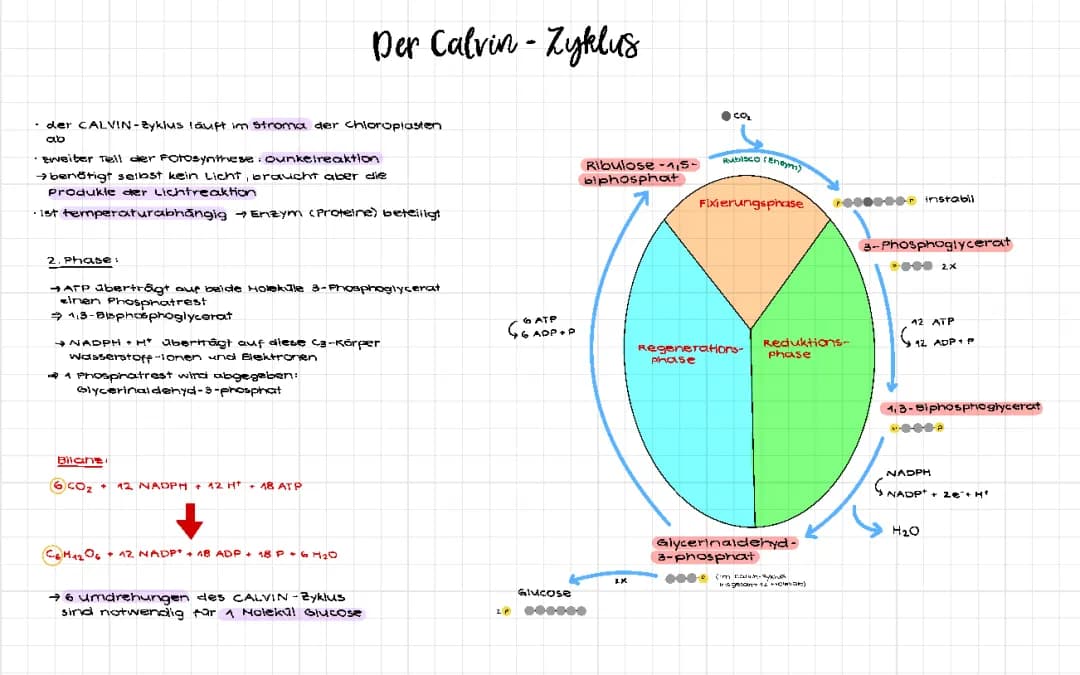 Der Calvin - Zyklus
· der CALVIN-Zyklus läuft im Stroma der Chloroplasten
ab
· zweiter Teil der Fotosynthese: Dunkelreaktion
→ benötigt selbst kein Licht, braucht aber die
Produkte der Lichtreaktion
· ist temperaturabhängig → Enzym (Proteine) beteiligt
2. Phase:
→ ATP überträgt auf beide Moleküle 3-Phosphoglycerat
einen Phosphatrest
⇒ 1,3-Bisphosphoglycerat
→ NADPH + H⁺ überträgt auf diese C₃-Körper
Wasserstoff-Ionen und Elektronen
→ 1 Phosphatrest wird abgegeben:
Glycerinaldehyd-3-phosphat
Bilanz:
6 CO₂ + 12 NADPH + 12 H⁺ + 18 ATP
C₆H₁₂O₆ + 12 NADP⁺ + 18 ADP + 18 P + 6 H₂O
→ 6 Umdrehungen des CALVIN-Zyklus
sind notwendig für 1 Molekül Glucose
CO₂
Rubisco (Enzym)
Ribulose-1,5-
biphosphat
Fixierungsphase
P P instabil
3-Phosphoglycerat
P 2x
12 ATP
12 ADP+P
6 ATP
6 ADP+P
Regenerations-
phase
Reduktions-
phase
1,3-Biphosphoglycerat
P P
NADPH
NADP⁺ + 2e⁻ + H⁺
H₂O
Glycerinaldehyd-
3-phosphat
P (im Calvin-Zyklus
insgesamt 12 Moleküle)
2x
Glucose
2 P